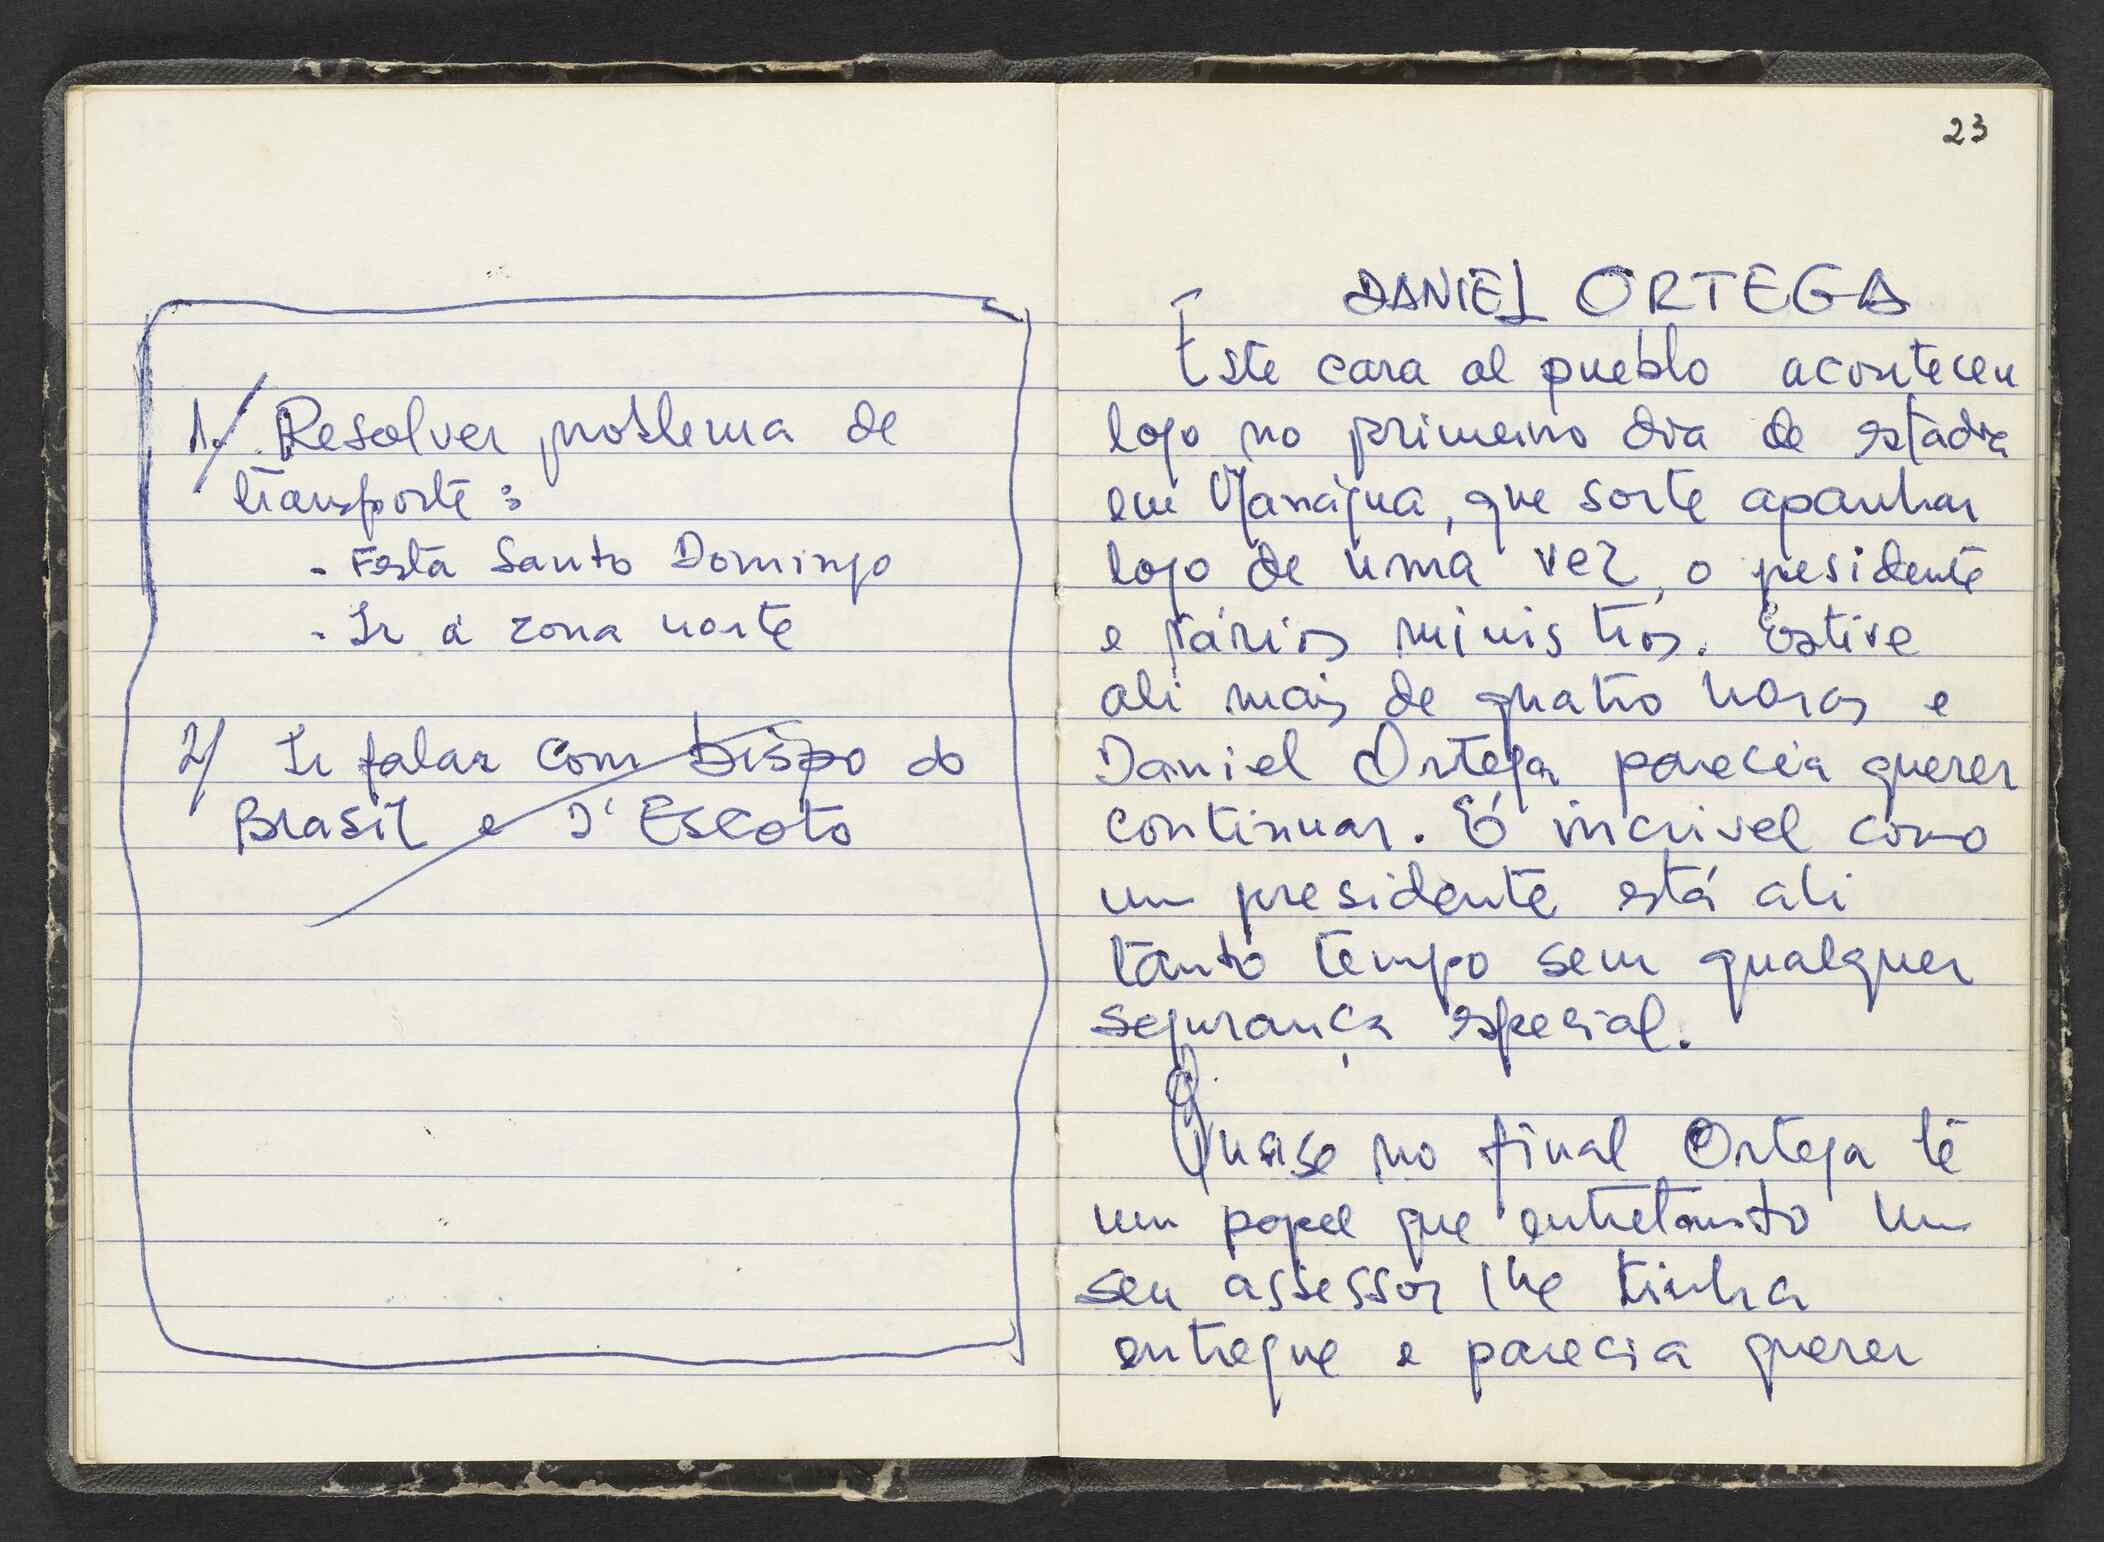 1/ Resolver problema de
transporte:
- Festa Santo Domingo
- Ir à zona norte
2/ Ir falar com bispo do
Brasil e D'Escoto
23
DANIEL ORTEGA
Este cara al pueblo aconteceu
logo no primeiro dia de estadia
em Manágua, que sorte apanhar
logo de uma vez, o presidente
e vários ministros. Estive
ali mais de quatro horas e
Daniel Ortega parecia querer
continuar. É incrivel como
um presidente está ali
tanto tempo sem qualquer
segurança especial.
Quase no final Ortega lê
um papel que entretanto um
seu assessor lhe tinha
entregue e parecia querer